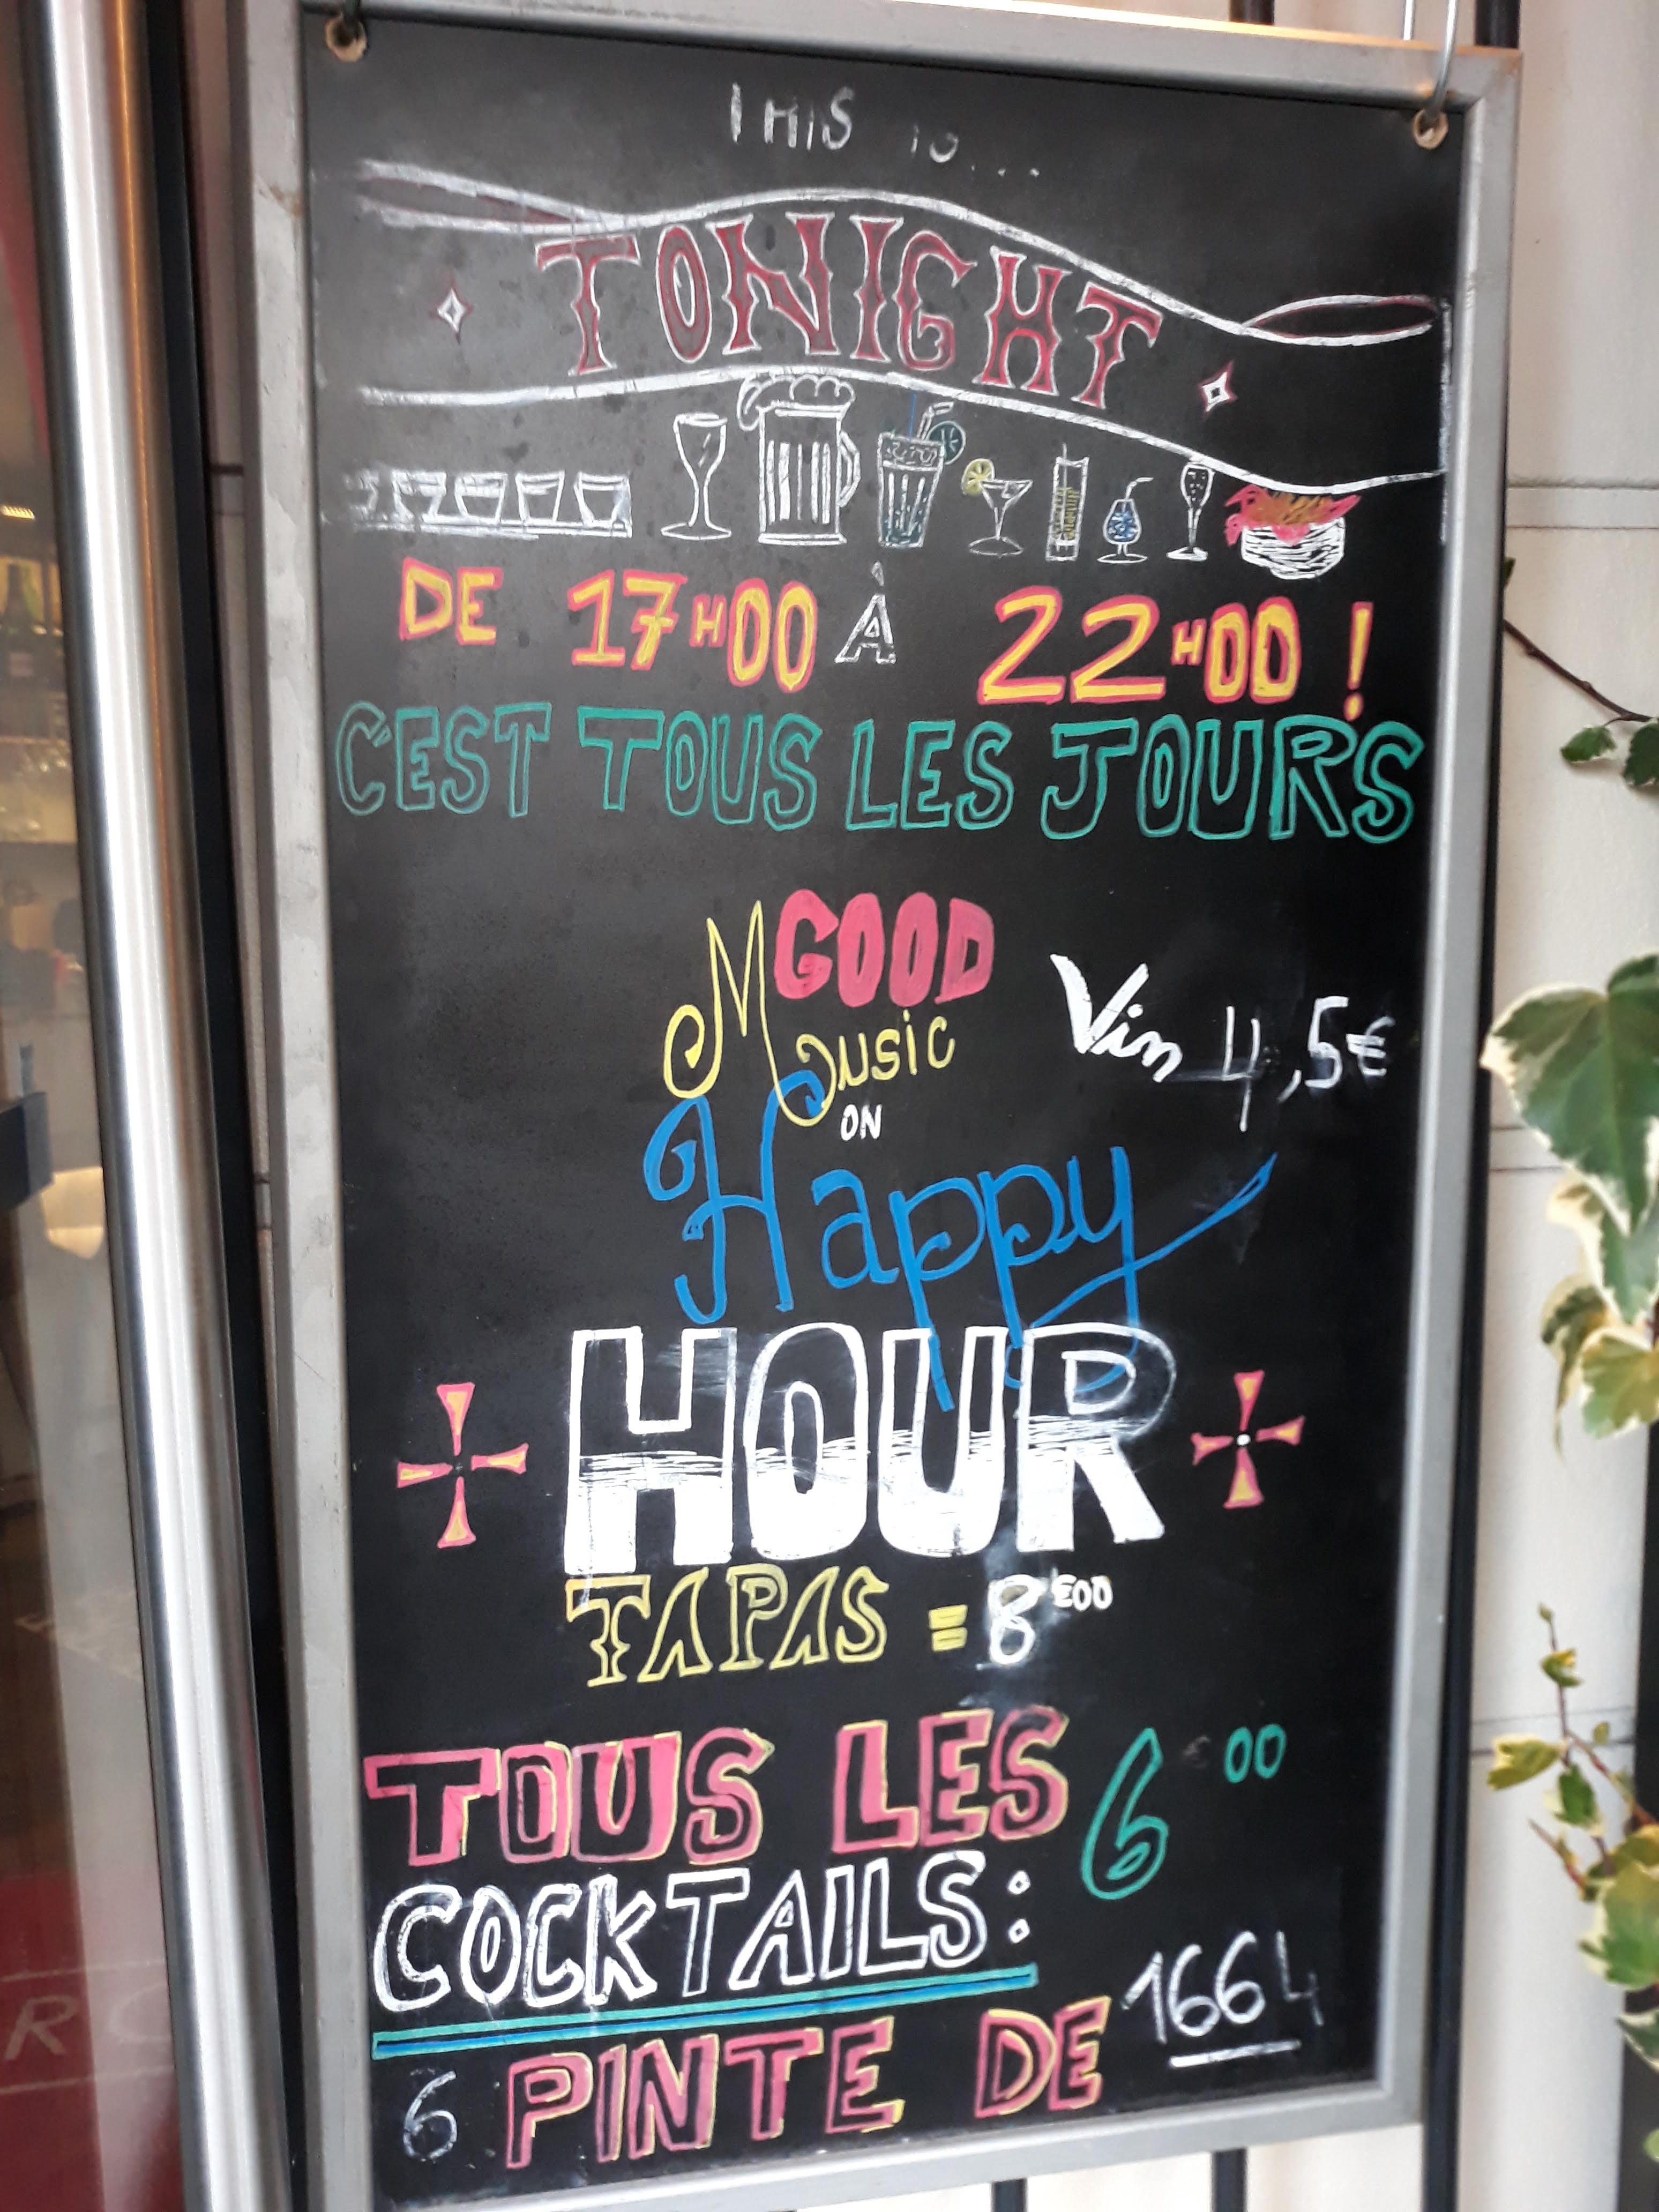 THIS IS...
TONIGHT
DE 17H00 À 22H00 !
C'EST TOUS LES JOURS
GOOD
Music
Vin 4,5€
ON
Happy
HOUR
TAPAS = 8€00
TOUS LES 6€00
COCKTAILS:
6 PINTE DE 1664